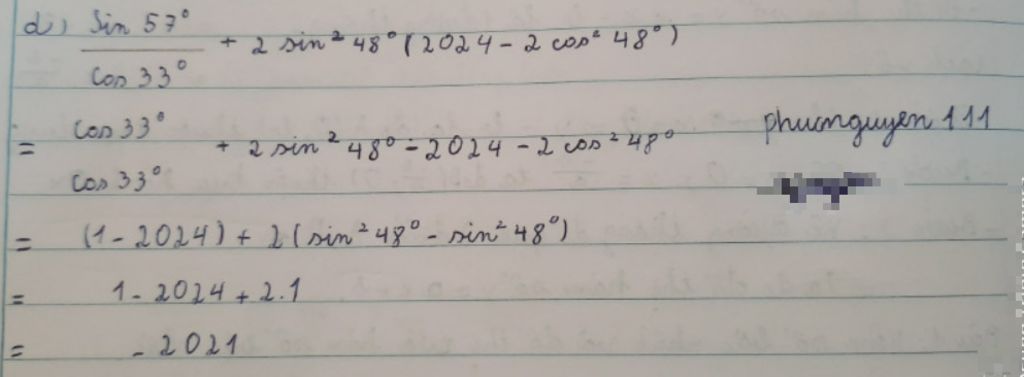 d) sin 57° / cos 33° + 2 sin² 48° (2024 - 2 cos² 48°)
= cos 33° / cos 33° + 2 sin² 48° - 2024 - 2 cos² 48°
phucnguyen 111
= (1 - 2024) + 2 (sin² 48° - sin² 48°)
= 1 - 2024 + 2.1
= - 2021